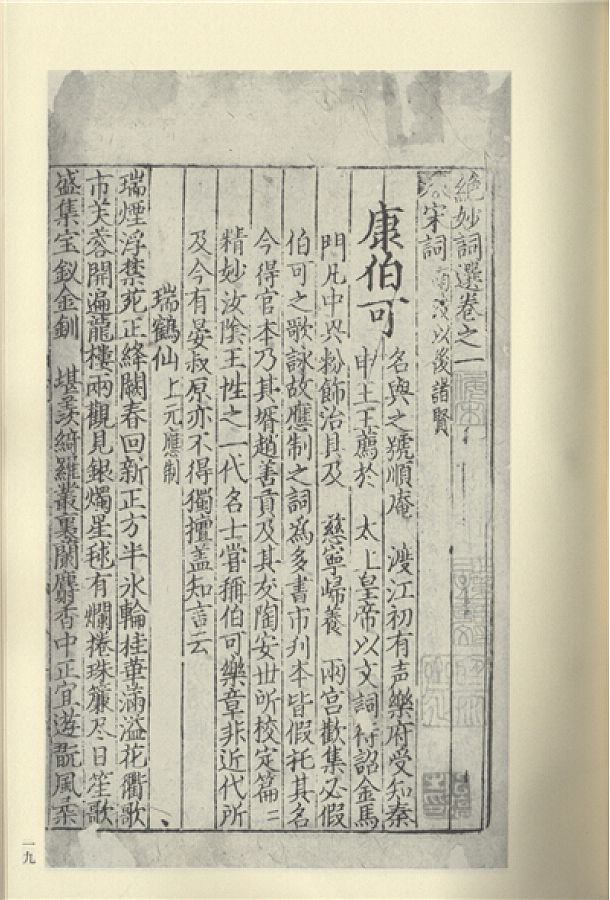 絶妙詞選卷之一
宋詞 南渡以後諸賢
康伯可 名與之號順庵 渡江初有声樂府受知秦
申王王薦於 太上皇帝以文詞待詔金馬
門凡中興粉飾治具及 慈寧歸養 兩宮歡集必假
伯可之歌詠故應制之詞為多書市刋本皆假托其名
今得官本乃其壻趙善貢及其友陶安世所校定篇二
精妙汝陰王性之一代名士甞稱伯可樂章非近代所
及今有晏叔原亦不得獨擅盖知言云
瑞鶴仙 上元應制
瑞煙浮禁苑正絳闕春回新正方半氷輪桂華滿溢花衢歌
市芙蓉開遍龍樓兩觀見銀燭星毬有爛捲珠簾尽日笙歌
盛集宝釵金釧 堪羡綺羅叢裏蘭麝香中正宜遊翫風柔
一九